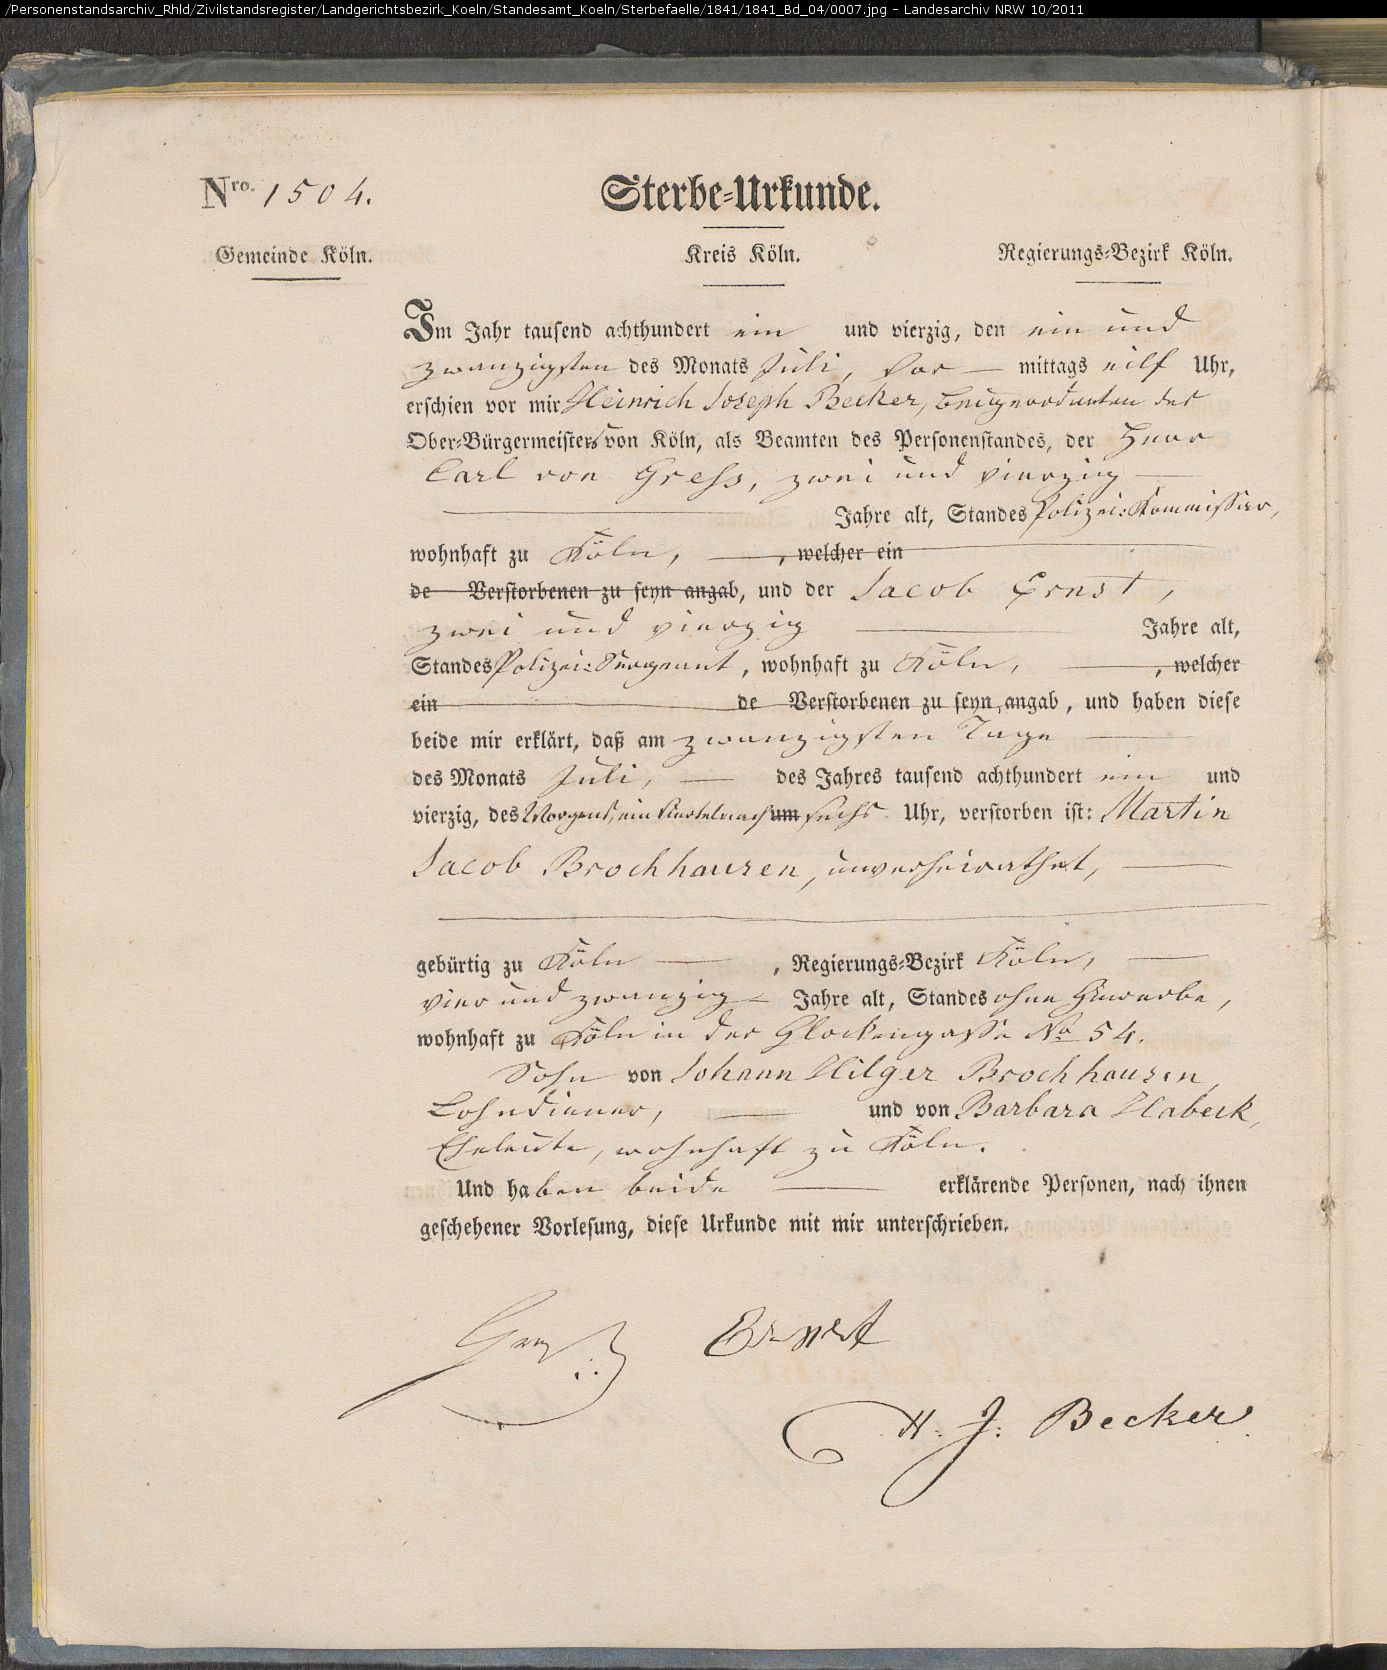 /Personenstandsarchiv_Rhld/Zivilstandsregister/Landgerichtsbezirk_Koeln/Standesamt_Koeln/Sterbefaelle/1841/1841_Bd_04/0007.jpg - Landesarchiv NRW 10/2011
Nro. 1504.
Sterbe-Urkunde.
Gemeinde Köln.
Kreis Köln.
Regierungs-Bezirk Köln.
Im Jahr tausend achthundert ein und vierzig, den ein und
zwanzigsten des Monats Juli, Vor — mittags eilf Uhr,
erschien vor mir Heinrich Joseph Becker, Beigeordneten des
Ober-Bürgermeisters von Köln, als Beamten des Personenstandes, der Herr
Carl von Gress, zwei und vierzig —
Jahre alt, Standes Polizei-Kommissar,
wohnhaft zu Köln, —, welcher ein
de Verstorbenen zu seyn angab, und der Jacob Ernst,
zwei und vierzig — Jahre alt,
Standes Polizei-Sergeant, wohnhaft zu Köln, —, welcher
ein de Verstorbenen zu seyn angab, und haben diese
beide mir erklärt, daß am zwanzigsten Tage —
des Monats Juli, — des Jahres tausend achthundert ein und
vierzig, des Morgens, ein Viertel nach um sechs Uhr, verstorben ist: Martin
Jacob Brochhausen, unverheirathet, —
gebürtig zu Köln —, Regierungs-Bezirk Köln, —
vier und zwanzig — Jahre alt, Standes ohne Gewerbe,
wohnhaft zu Köln in der Glockengasse No 54.
Sohn von Johann Hilger Brochhausen,
Lohndiener, — und von Barbara Habeck,
Eheleute, wohnhaft zu Köln.
Und haben beide — erklärende Personen, nach ihnen
geschehener Vorlesung, diese Urkunde mit mir unterschrieben.
Ernst
H. J. Becker